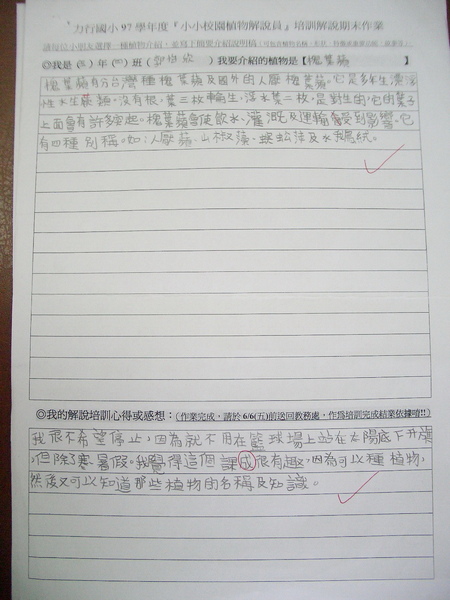 力行國小97學年度『小小校園植物解說員』培訓解說期末作業
請每位小朋友選擇一種植物介紹，並寫下簡要介紹說明稿
◎我是（ ）年（ ）班（ ）我要介紹的植物是【槐葉蘋】
槐葉蘋有分台灣種槐葉蘋及國外的人厭槐葉蘋。它是多年生漂浮
性水生蕨類，沒有根，葉三枚輪生，浮水葉二枚，是對生的，它的葉子
上面會有許多突起。槐葉蘋會使飲水、灌溉及運輸受到影響。它
有四種別稱。如：人厭蘋、山椒藻、蜈蚣萍及水
◎我的解說培訓心得或感想：（作業完成，請於6/6(五)前送回教務處，作為培訓完成結業依據唷!!）
我很不希望停止，因為就不用在籃球場上站在太陽底下升旗
，但除了寒暑假。我覺得這個課成很有趣，因為可以種植物，
然後又可以知道那些植物的名稱及知識。